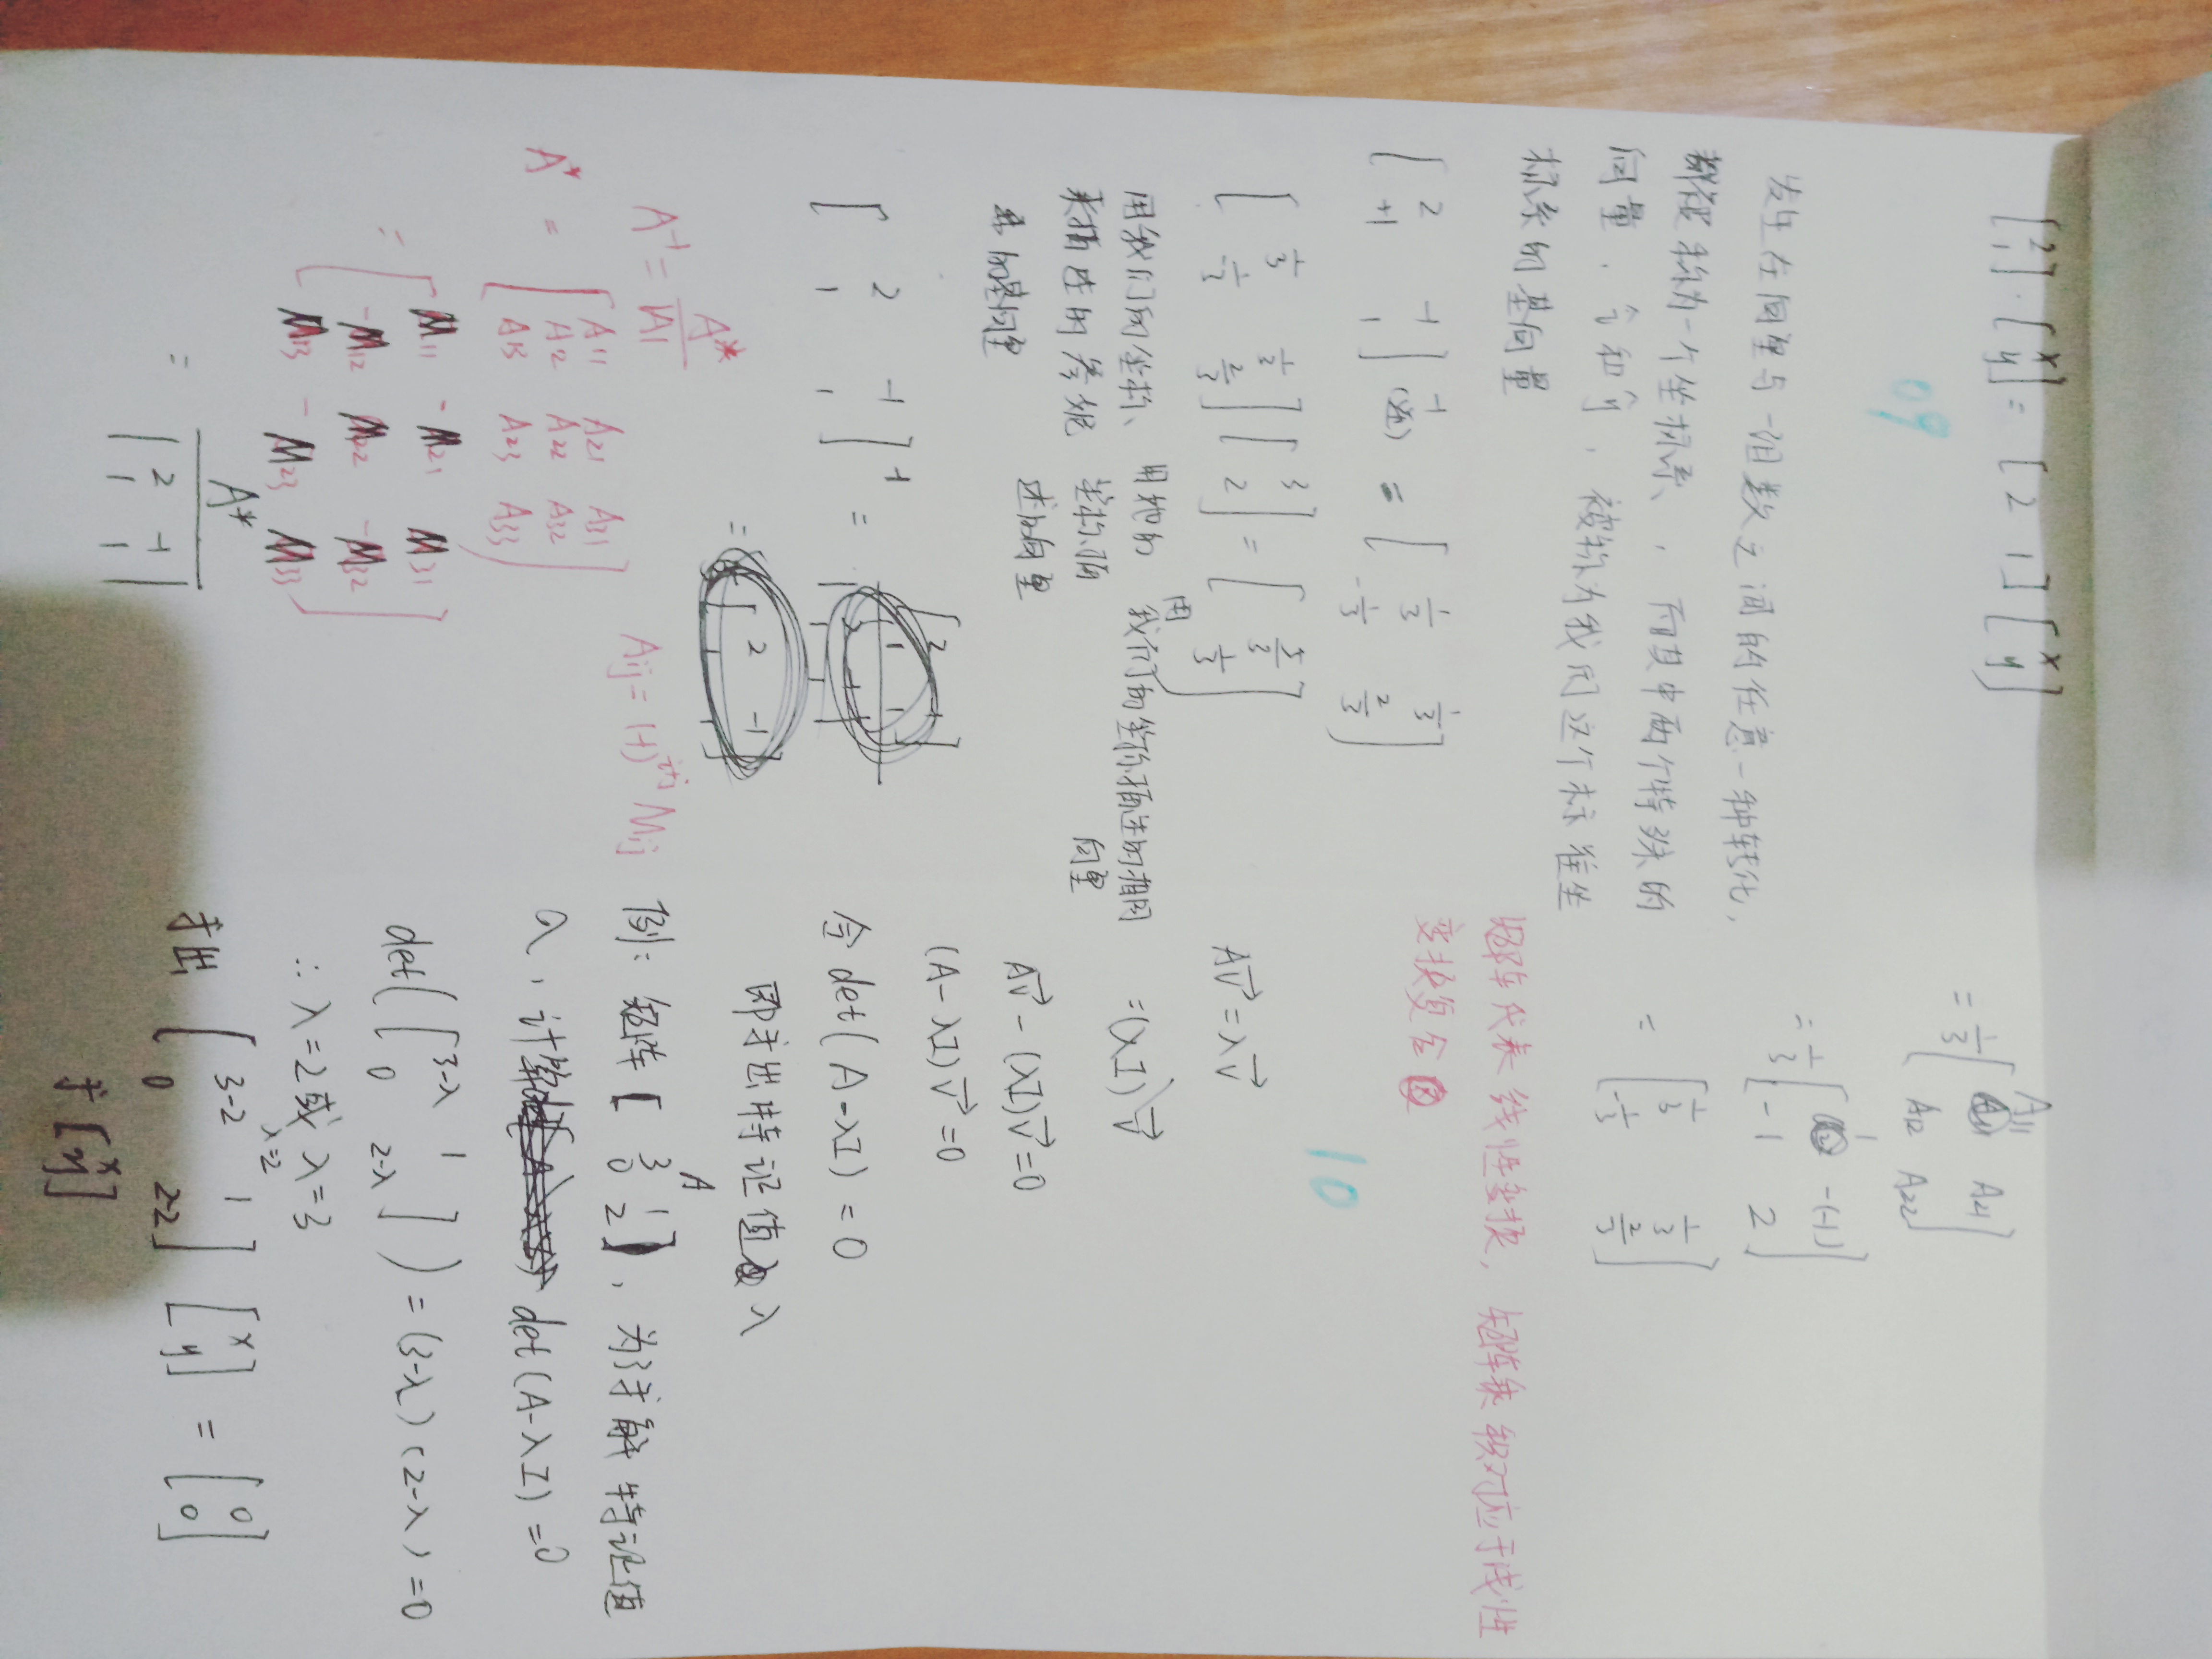 [2 1]·[x y] = [2 1][x y]
09
发生在向量与一组数之间的任意一种转化,
都被称为一个坐标系,而其中两个特殊的
向量,î和ĵ,被称为我们这个标准坐
标系的基向量
[2 -1
+1 1]⁻¹(逆) = [1/3 1/3
-1/3 2/3]
[1/3 1/3
-1/3 2/3][3
2] = [5/3
1/3]
用我们的坐标
来描述的
基向量
用她的
坐标
述的向量
用
我们的坐标描述的相同
向量
[2 -1
1 1]⁻¹ =
=
[2 -1
A⁻¹ = A*/|A|
A* = [A11 A21 A31
A12 A22 A32
A13 A23 A33]
Aij = (-1)^(i+j) Mij
= [M11 -M21 M31
-M12 M22 -M32
M13 -M23 M33]
= A*
|2 -1
1 1|
A11
= 1/3 [A11 A21
A12 A22]
= 1/3 [1 -(-1)
-1 2]
= [1/3 1/3
-1/3 2/3]
矩阵代表线性变换,矩阵乘积对应于线性
变换复合
10
Av⃗ = λv⃗
= (λI)v⃗
Av⃗ - (λI)v⃗ = 0
(A-λI)v⃗ = 0
令 det(A-λI) = 0
即求出特证值 λ
A
例: 矩阵 [3 1
0 2], 为了求解特证值
λ, 计算 det(A-λI) = 0
det([3-λ 1
0 2-λ]) = (3-λ)(2-λ) = 0
∴ λ=2或λ=3
λ=2
求出 [3-2 1
0 2-2][x
y] = [0
0]
求 [x
y]